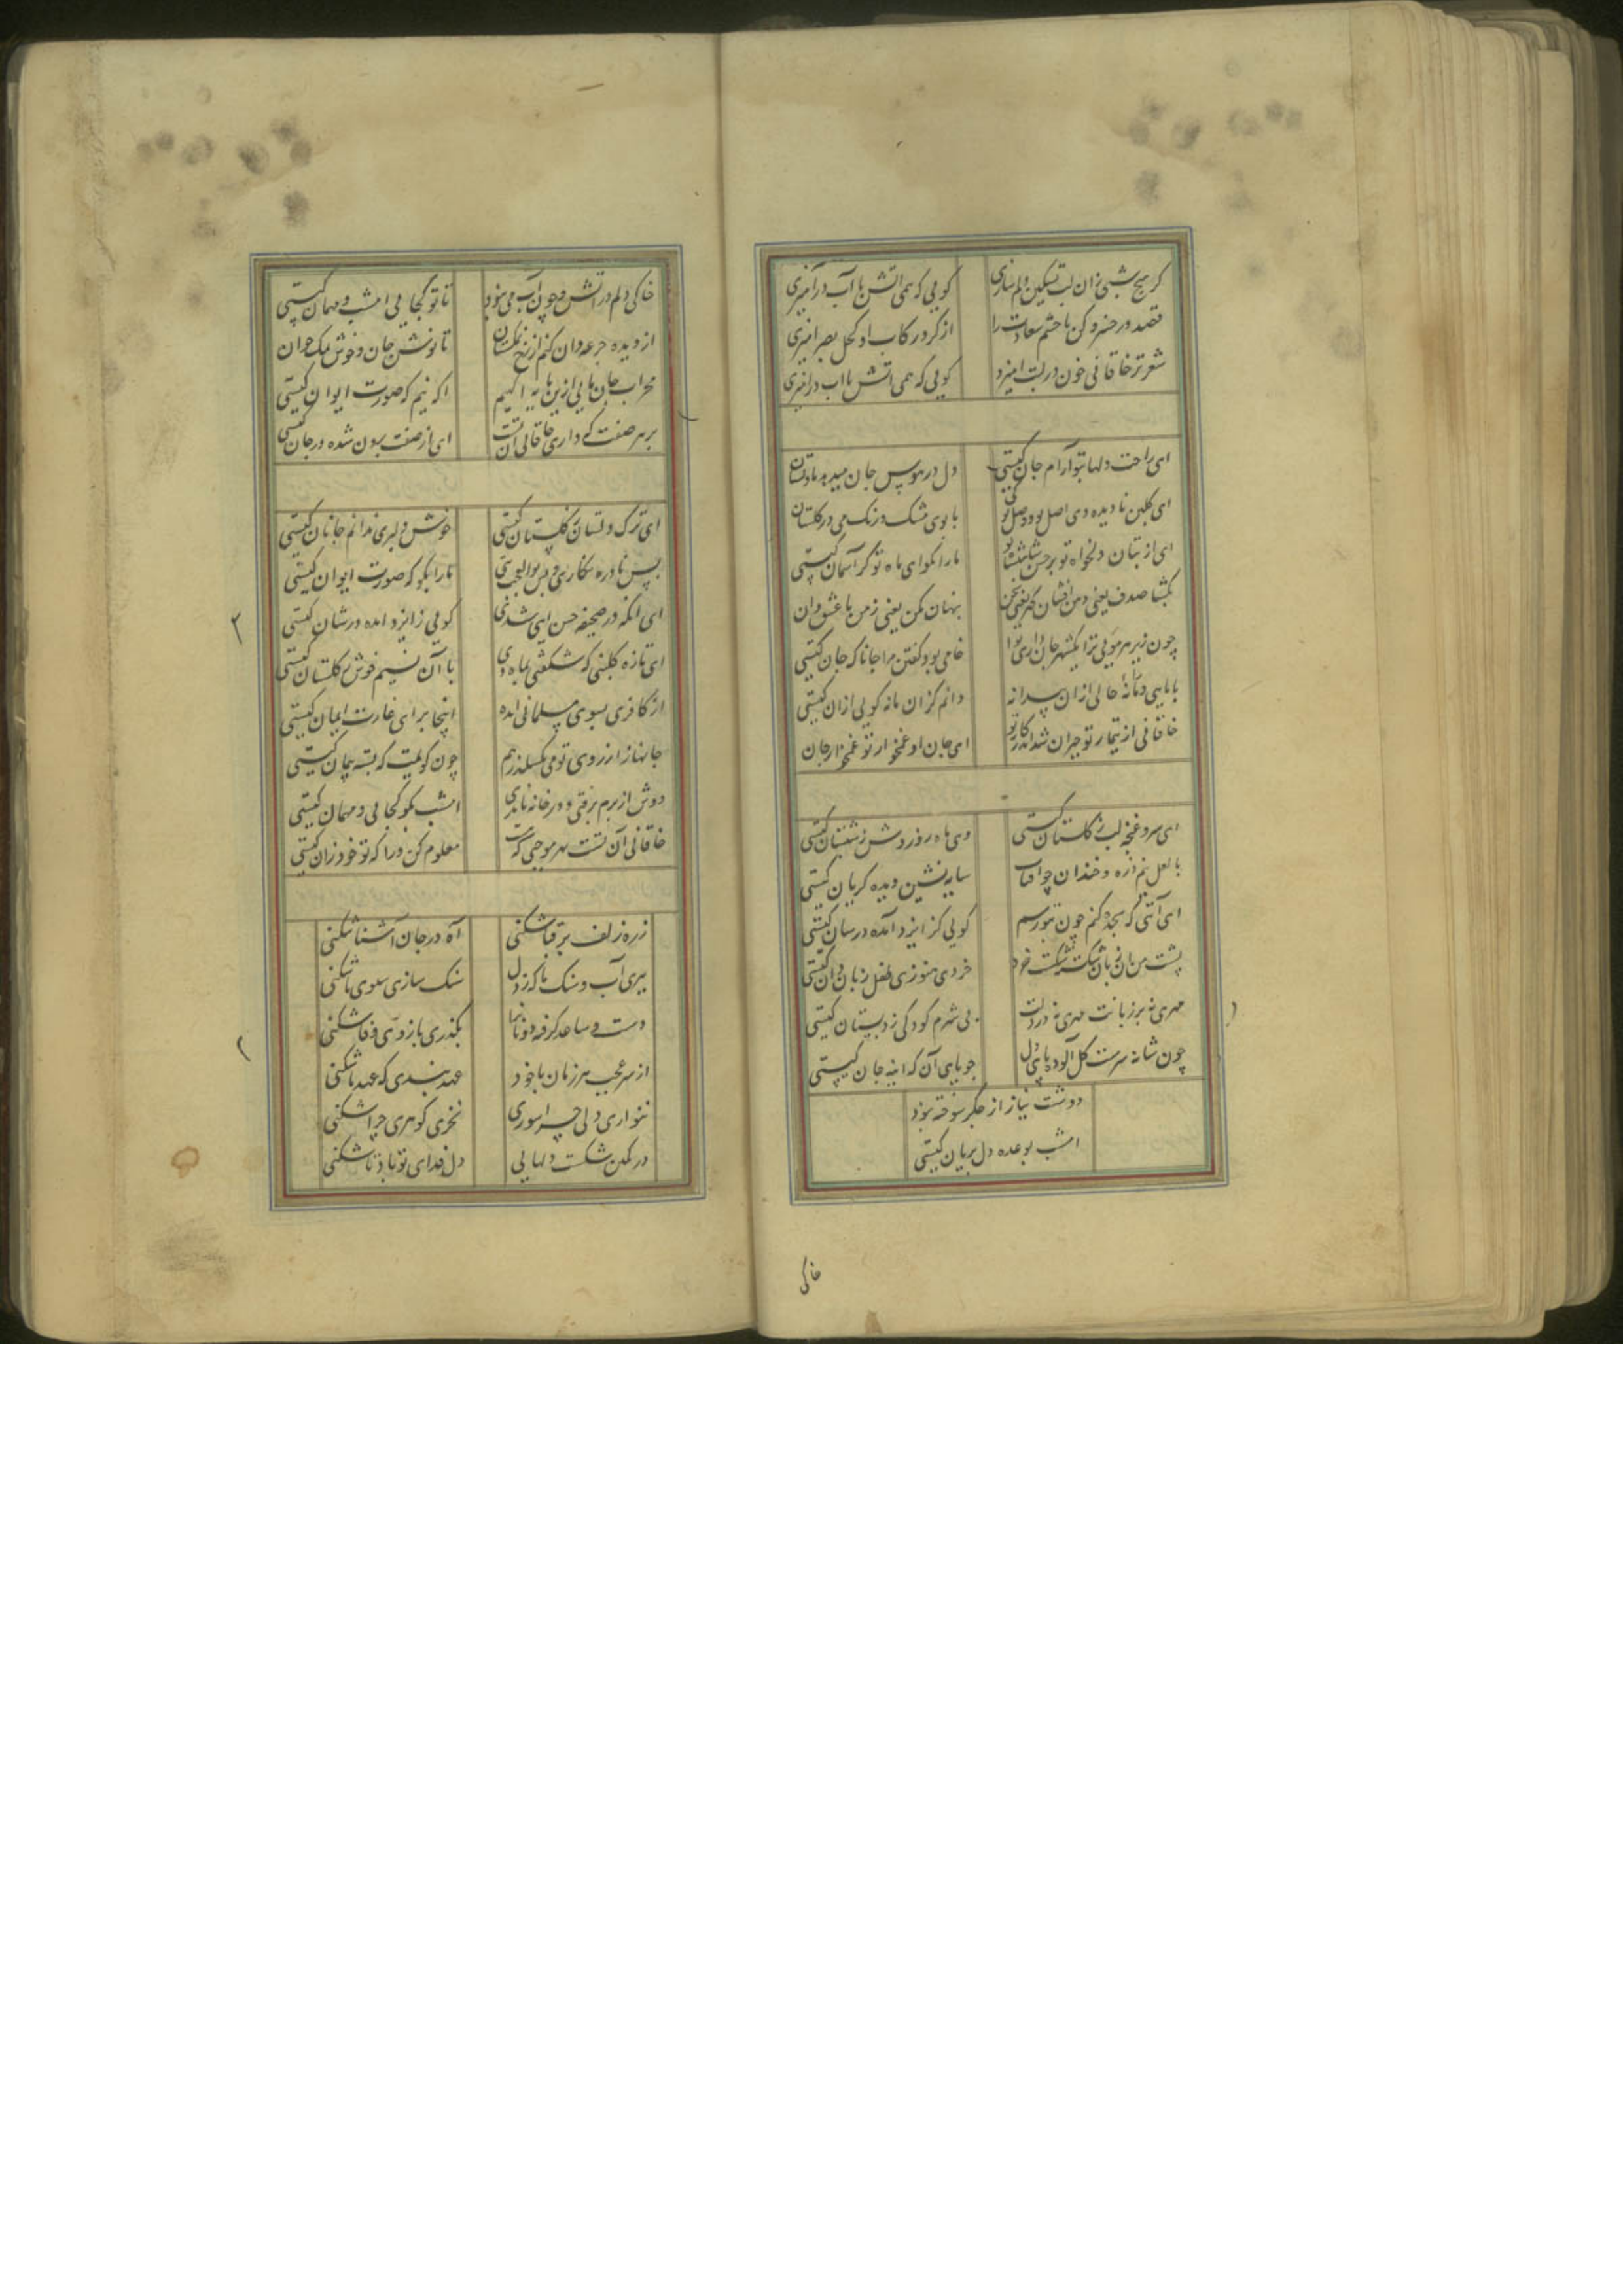 کر هیچ شبی زان لب تسکین دلم سازی کویی که همی آتش با آب درآمیزی
قصد در خسرو کن تا چشم سعادت را از کرد رکاب او کحل بصر امیزی
شعر تر خاقانی خون در لبت امیزد کویی که همی اتش با اب درامیزی
ای راحت دلها بتو آرام جان کیستی دل در هوس جان میدهد تا دلستان
ای کلبن نادیده دی اصل تو وصل تو کی با بوی مشک و رنک می در کلستان
ای از بتان دلخواه تو بر حسن شاهنشاه تو ما را بکو ای ماه تو کز آسمان کیستی
بکشا صدف یعنی دهن افشان کهر یعنی سخن پنهان مکن یعنی ز من با عشق دان
چون زیر هر مویی ترا یکشهر جان داری نوا خامی بود کفتن مرا جانا که جان کیستی
با مایی و ما نه حالی از ان سرانه دانم کزان مانه کویی ازان کیستی
خاقانی از تیمار تو حیران شد اندر کار تو ای جان او غمخوار تو غمخوار جان
ای سرو غنچه لب ز کلستان کیستی وی ماه روز وش ز شبستان کیستی
با لعل نیم ذره و خندان چو افتاب سایه نشین دیده کریان کیستی
ای آیتی که سجده کنم چون بتو رسم کویی کز ایزد آمده در سان کیستی
خردی هنوز طفل زبان دان کیستی
مهری نه بر زبانت مهری نه در دلت بی شرم کودکی ز دبستان کیستی
چون شانه سرت کل آلوده پای دل جویای آن که اینه جان کیستی
دوشت نیاز از جکر سوخته بزود
امشب بوعده دل بریان کیستی
خاکی
خاکی دلم در اتش و چون آب می نبود تا تو کجایی امشب و مهمان کیستی
از دیده جرعه دان کنم از رخ نمکستان تا نوش جان و خوش نمک خوان
محراب جان مایی ازین مایه اکهیم اکه نیم که صورت ایوان کیستی
بر هر صفت که داری خاقانی آن تست ای از صفت برون شده در جان کیستی
ای ترک دلستان ز کلستان کیستی خوش دلبری ندانم جانان کیستی
بس نادره نکاری و بس بوالعجب بتی ما را بکو که صورت ایوان کیستی
ای انکه در صحیفه حسن ایتی شدی کویی ز ایزد امده در شان کیستی
ای تازه کلبنی که شکفتی بماه دی با آن نسیم خوش ز کلستان کیستی
از کافری بسوی مسلمانی امده اینجا برای غارت ایمان کیستی
جانها ز ارزوی تو می بکسلد زهم چون کویمت که بسته پیمان کیستی
دوش از برم برفتی و در خانه نامدی امشب بکو کجایی و مهمان کیستی
خاقانی آن تست بهر موجبی که هست معلوم کن ورا که تو خود زان کیستی
زره زلف بر قبا شکنی آه در جان آشنا شکنی
ببری آب و سنک ما که ز دل سنک سازی سبوی ما شکنی
دست و ساعد کرفته دونانرا بکذری بازوی وفا شکنی
از سر عجب هر زمان با خود عهد بندی که عهد ما شکنی
ننوازی دلی چرا سوزی نخری کوهری چرا شکنی
در کمین شکست دلهایی دل فدای تو باد تا شکنی